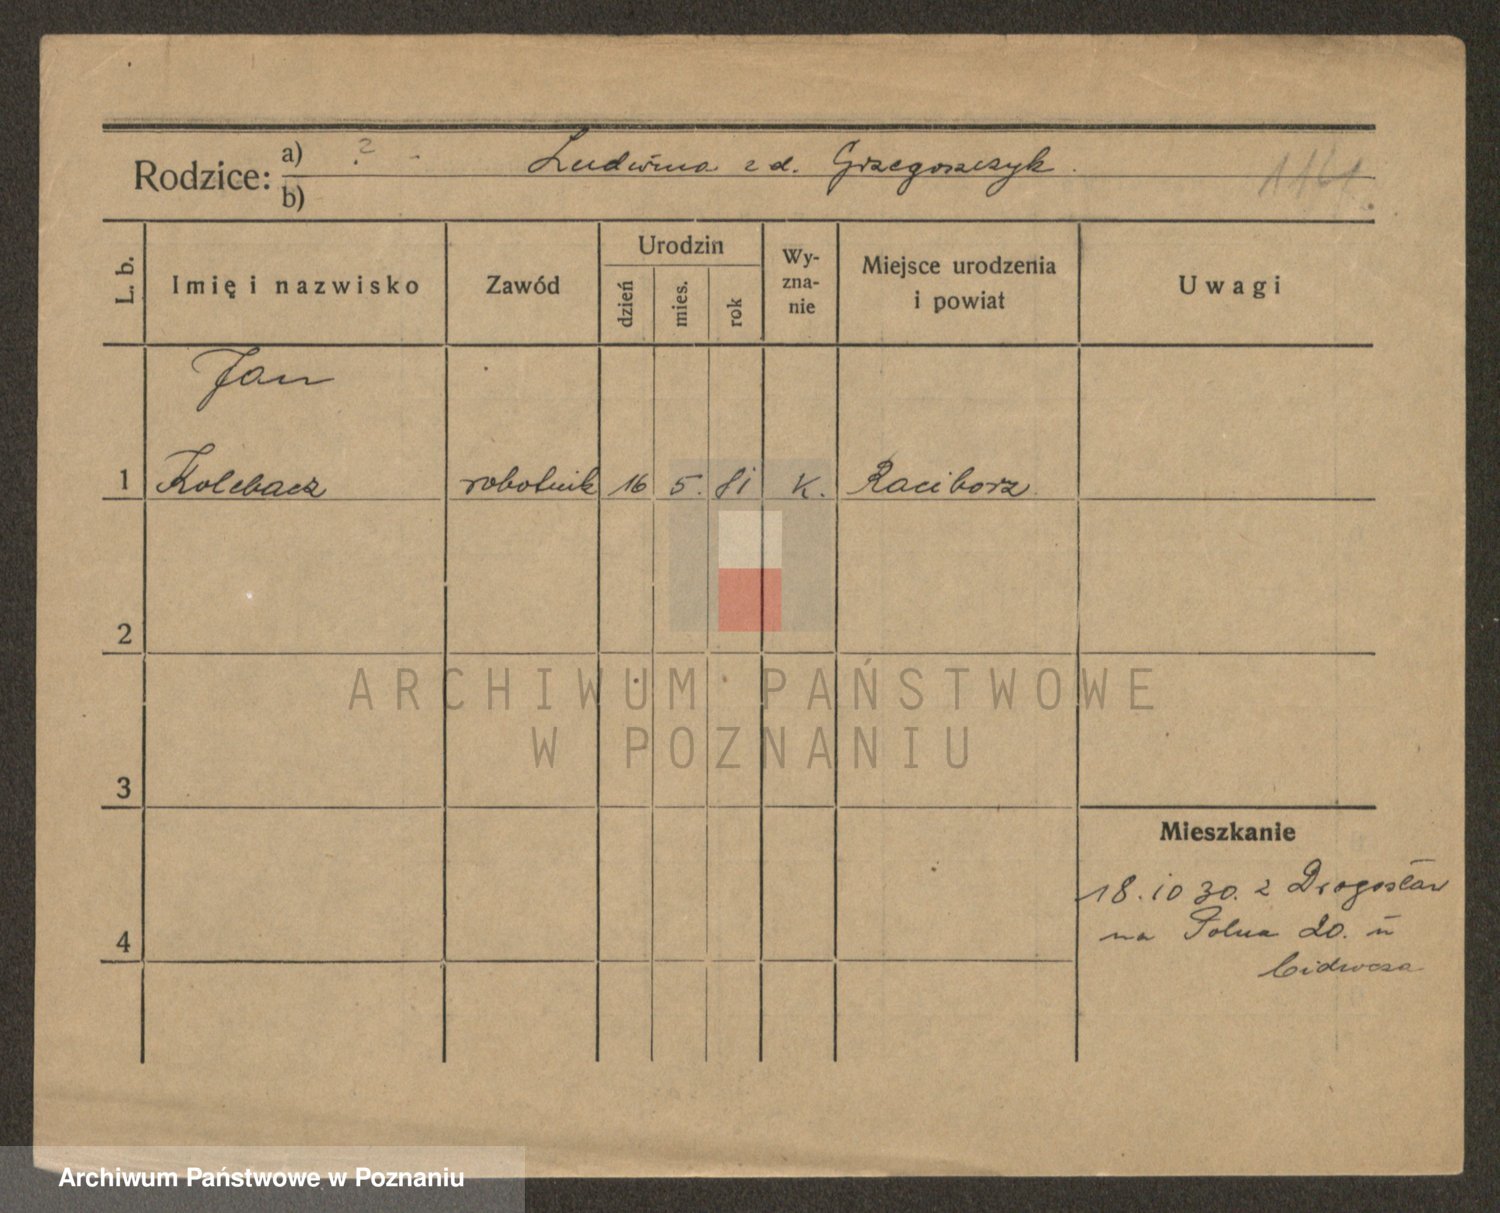 Rodzice: a) ? Ludwina z d. Grzegorszczyk.
b)
L. b. Imię i nazwisko Zawód Urodzin dzień mies. rok Wy-zna-nie Miejsce urodzenia i powiat Uwagi
Jan
1 Kolebacz robotnik 16 5. 81 K. Raciborz
2
ARCHIWUM PAŃSTWOWE
W POZNANIU
3
Mieszkanie
18.10 30. z Drogosław
na Polna 20. u
4
Archiwum Państwowe w Poznaniu